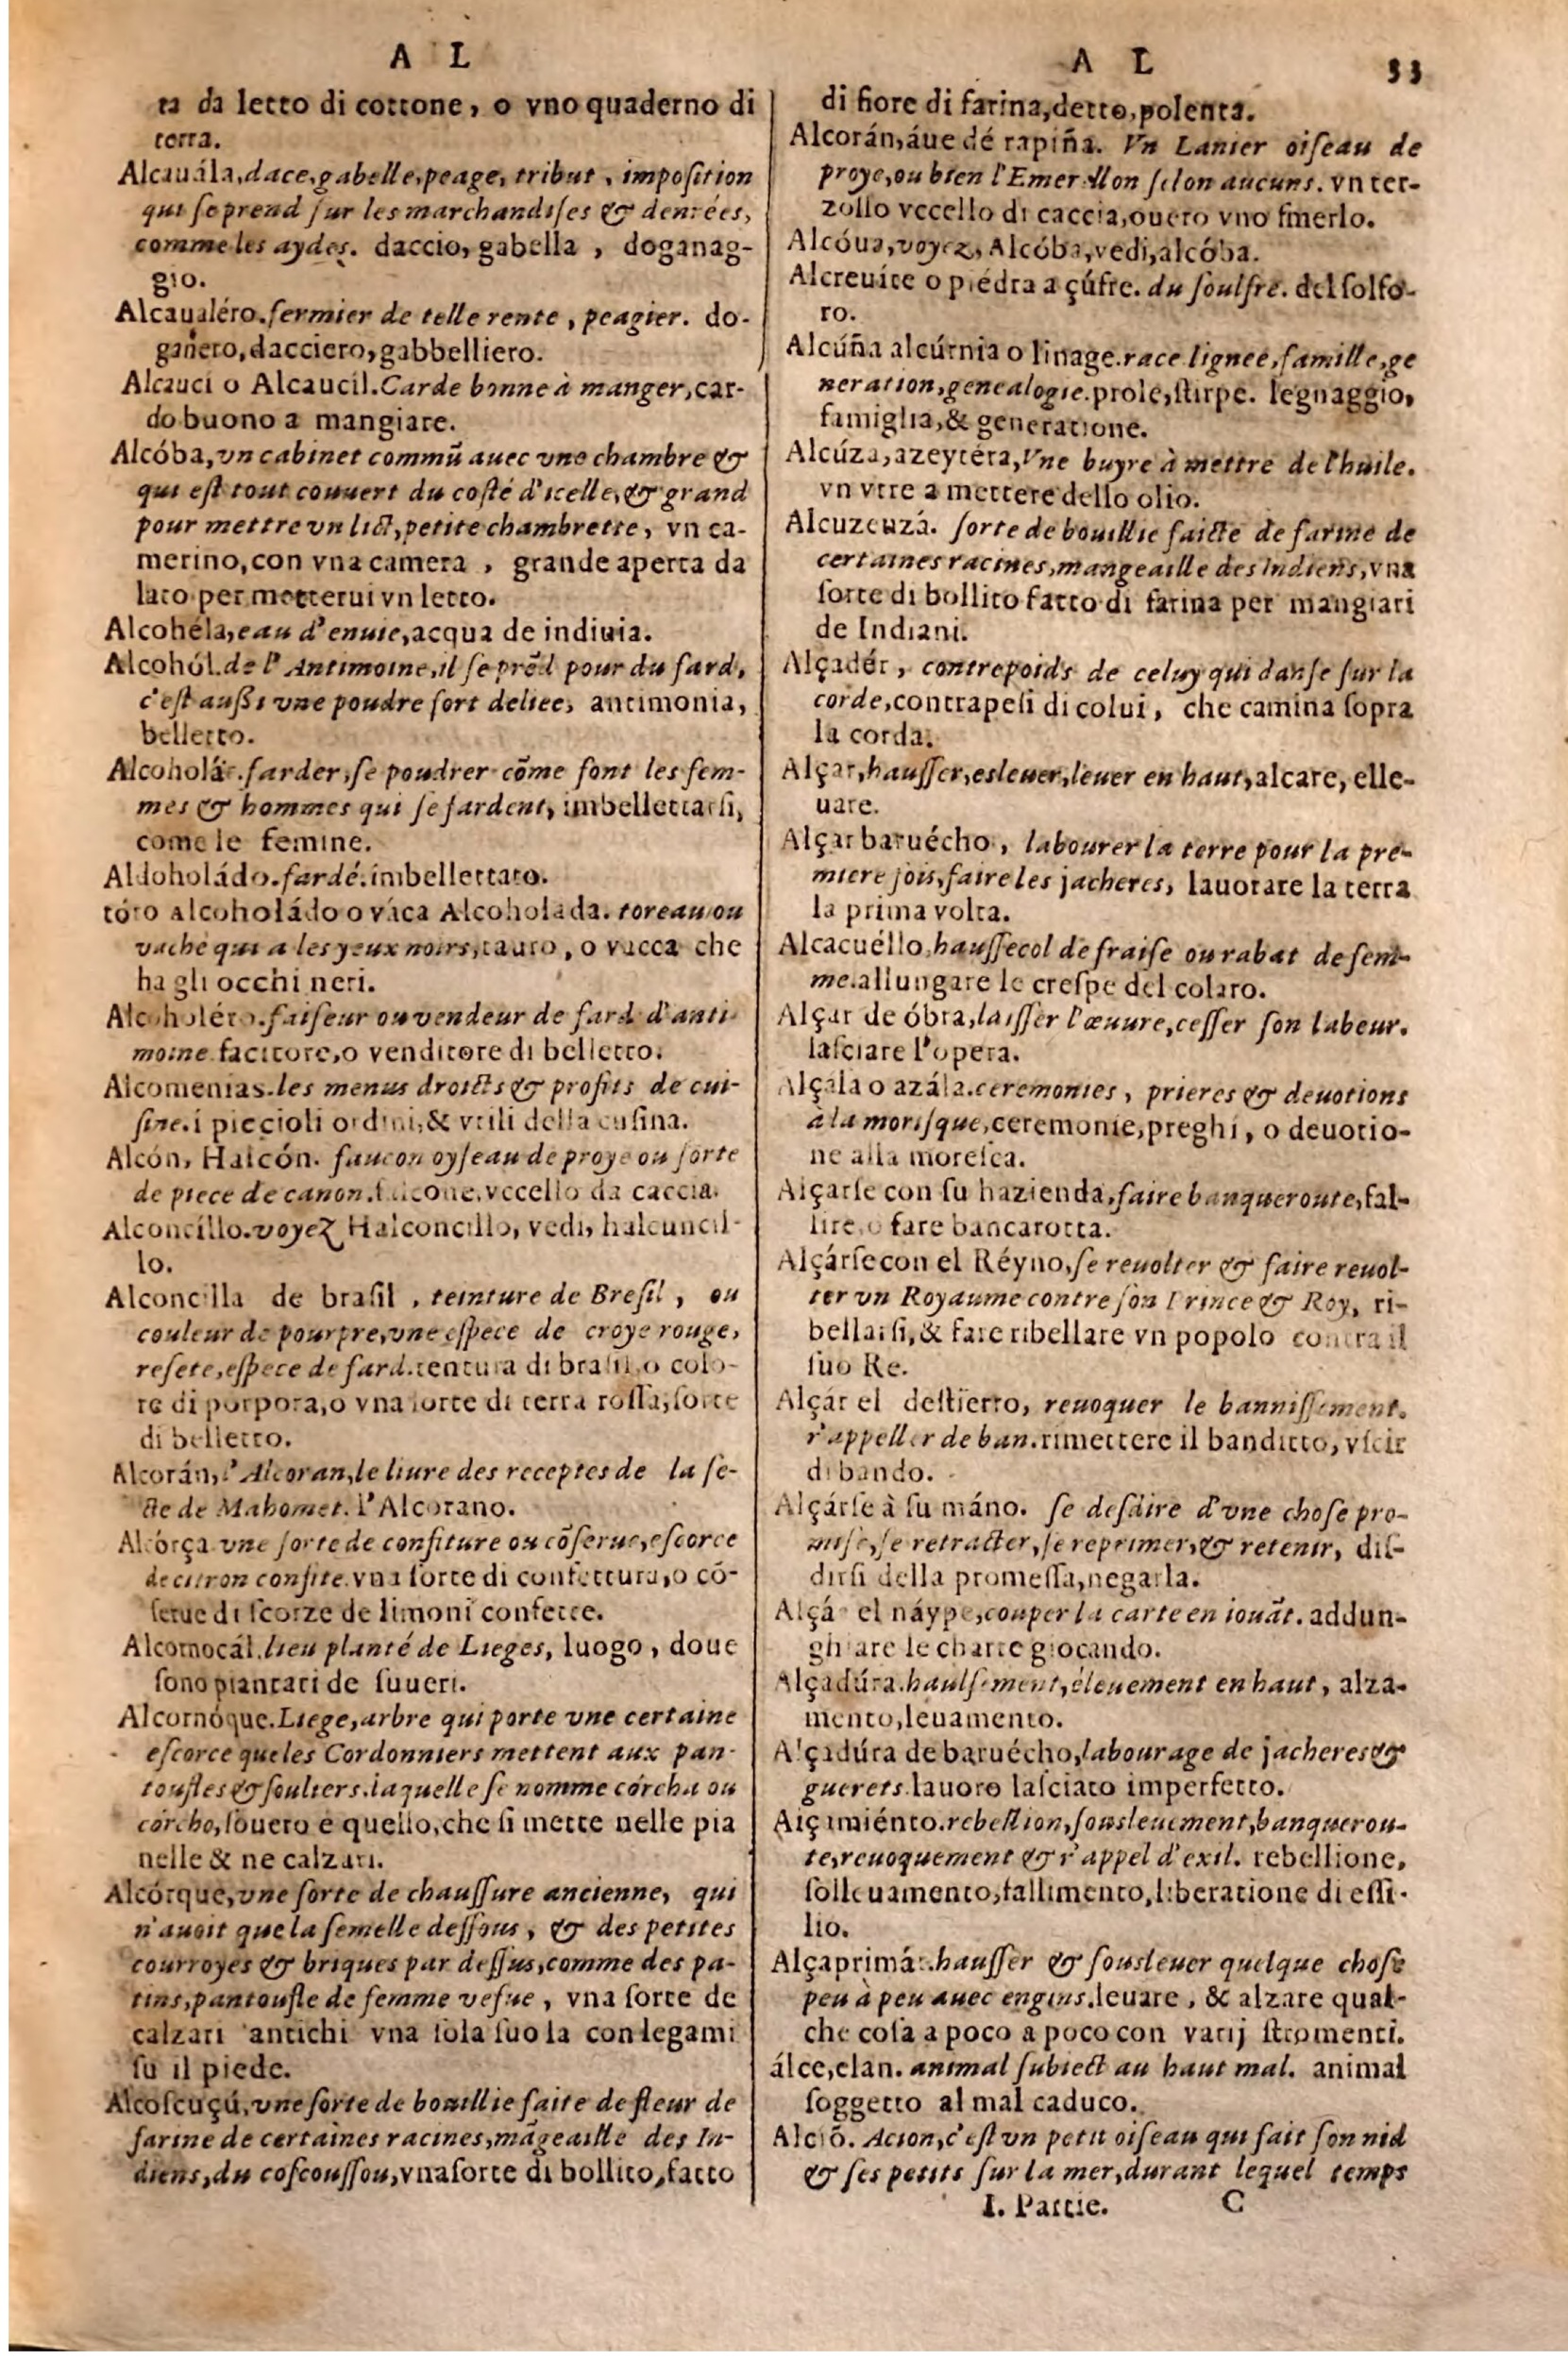 A L
ta da letto di cottone, o vno quaderno di
terra.
Alcauála, dace, gabelle, peage, tribut, imposition
qui se prend sur les marchandises & denrées,
comme les aydes. daccio, gabella, doganag-
gio.
Alcaualéro. fermier de telle rente, peagier. do-
ganero, dacciero, gabbelliero.
Alcauci o Alcaucil. Carde bonne à manger, car-
do buono a mangiare.
Alcóba, vn cabinet commũ auec vne chambre &
qui est tout couuert du costé d'icelle, & grand
pour mettre vn lict, petite chambrette, vn ca-
merino, con vna camera, grande aperta da
lato per metterui vn letto.
Alcohéla, eau d'enuie, acqua de indiuia.
Alcohól. de l'Antimoine, il se prẽd pour du fard,
c'est aussi vne poudre fort deliee, antimonia,
belletto.
Alcoholár. farder, se poudrer cõme font les fem-
mes & hommes qui se fardent, imbellettarsi,
come le femine.
Aldoholádo. fardé. imbellettato.
tóro Alcoholádo o váca Alcoholada. toreau ou
vache qui a les yeux noirs, tauro, o vacca che
ha gli occhi neri.
Alcoholéro. faiseur ou vendeur de fard d'anti-
moine. facitore, o venditore di belletto.
Alcomenias. les menus droicts & profits de cui-
sine. i piccioli ordini, & vtili della cusina.
Alcón, Halcón. faucon oyseau de proye ou sorte
de piece de canon. falcone, vccello da caccia.
Alconcíllo. voyez Halconcillo, vedi, halcuncil-
lo.
Alconcilla de brasil, teinture de Bresil, ou
couleur de pourpre, vne espece de croye rouge,
resete, espece de fard. tentura di brasil, o colo-
re di porpora, o vna sorte di terra rossa, sorte
di belletto.
Alcorán, l'Alcoran, le liure des receptes de la se-
cte de Mahomet. l'Alcorano.
Alcórça vne sorte de confiture ou cõserue, escorce
de citron confite. vna sorte di confettura, o cõ-
serue di scorze de limoni confette.
Alcornocál. lieu planté de Lieges, luogo, doue
sono piantati de suueri.
Alcornóque. Liege, arbre qui porte vne certaine
escorce que les Cordonniers mettent aux pan-
toufles & souliers. laquelle se nomme córcha ou
córcho, souero e quello, che si mette nelle pia
nelle & ne calzari.
Alcórque, vne sorte de chaussure ancienne, qui
n'auoit que la semelle dessous, & des petites
courroyes & briques par dessus, comme des pa-
tins, pantoufle de femme vefue, vna sorte de
calzari antichi vna sola suola con legami
su il piede.
Alcoscuçú, vne sorte de bouillie faite de fleur de
farine de certaines racines, mãgeaille des In-
diens, du coscoussou, vna sorte di bollito, fatto
A L 33
di fiore di farina, detto, polenta.
Alcorán, áue dé rapiña. Vn Lanier oiseau de
proye, ou bien l'Emerillon selon aucuns. vn ter-
zollo vccello di caccia, ouero vno smerlo.
Alcóua, voyez, Alcóba, vedi, alcóba.
Alcreuíte o piédra açúfre. du soulfre. del solfo-
ro.
Alcúña alcúrnia o linage. race lignee, famille, ge
neration, genealogie. prole, stirpe. legnaggio,
famiglia, & generatione.
Alcúza, azeytéra, Vne buyre à mettre de l'huile.
vn vtre a mettere dello olio.
Alcuzcuzá. sorte de bouillie faicte de farine de
certaines racines, mangeaille des Indiens, vna
sorte di bollito fatto di farina per mangiari
de Indiani.
Alçadér, contrepoids de celuy qui danse sur la
corde, contrapesi di colui, che camina sopra
la corda.
Alçar, hausser, esleuer, leuer en haut, alcare, elle-
uare.
Alçar baruécho, labourer la terre pour la pre-
miere fois, faire les jacheres, lauorare la terra
la prima volta.
Alcacuéllo, haussecol de fraise ou rabat de fem-
me. allungare le crespe del colaro.
Alçar de óbra, laisser l'œuure, cesser son labeur.
lasciare l'opera.
Alçala o azála. ceremonies, prieres & deuotions
à la morisque, ceremonie, preghi, o deuotio-
ne alla moresca.
Alçarse con su hazienda, faire banqueroute, fal-
lire, o fare bancarotta.
Alçárse con el Réyno, se reuolter & faire reuol-
ter vn Royaume contre son Prince & Roy, ri-
bellarsi, & fare ribellare vn popolo contra il
suo Re.
Alçár el destierro, reuoquer le bannissement.
r'appeller de ban. rimettere il banditto, vscir
di bando.
Alçárse à su máno. se desdire d'vne chose pro-
mise, se retracter, se reprimer, & retenir, dis-
dirsi della promessa, negarla.
Alçár el náype, couper la carte en iouãt. addun-
ghiare le charte giocando.
Alçadúra. haulsement, éleuement en haut, alza-
mento, leuamento.
Alçadúra de baruécho, labourage de jacheres &
guerets. lauoro lasciato imperfetto.
Alçamiénto. rebellion, sousleuement, banquerou-
te, reuoquement & r'appel d'exil. rebellione,
solleuamento, fallimento, liberatione di essi-
lio.
Alçaprimár. hausser & sousleuer quelque chose
peu à peu auec engins. leuare, & alzare qual-
che cosa a poco a poco con varij stromenti.
álce, elan. animal subiect au haut mal. animal
soggetto al mal caduco.
Alciõ. Acion, c'est vn petit oiseau qui fait son nid
& ses petits sur la mer, durant lequel temps
I. Partie. C